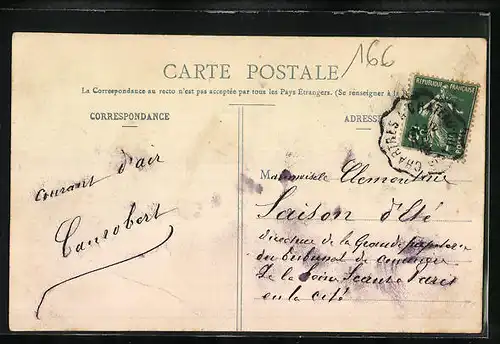 166
CARTE POSTALE
La Correspondance au recto n'est pas acceptée par tous les Pays Étrangers. (Se renseigner à la
CORRESPONDANCE
ADRESSE
REPUBLIQUE FRANÇAISE
CHARTRES
Courant d'air
Canrobert
Mademoiselle Clémentine
Saison d'Eté
directrice de la Grande
du tribunal de
De la Paris
en la cité